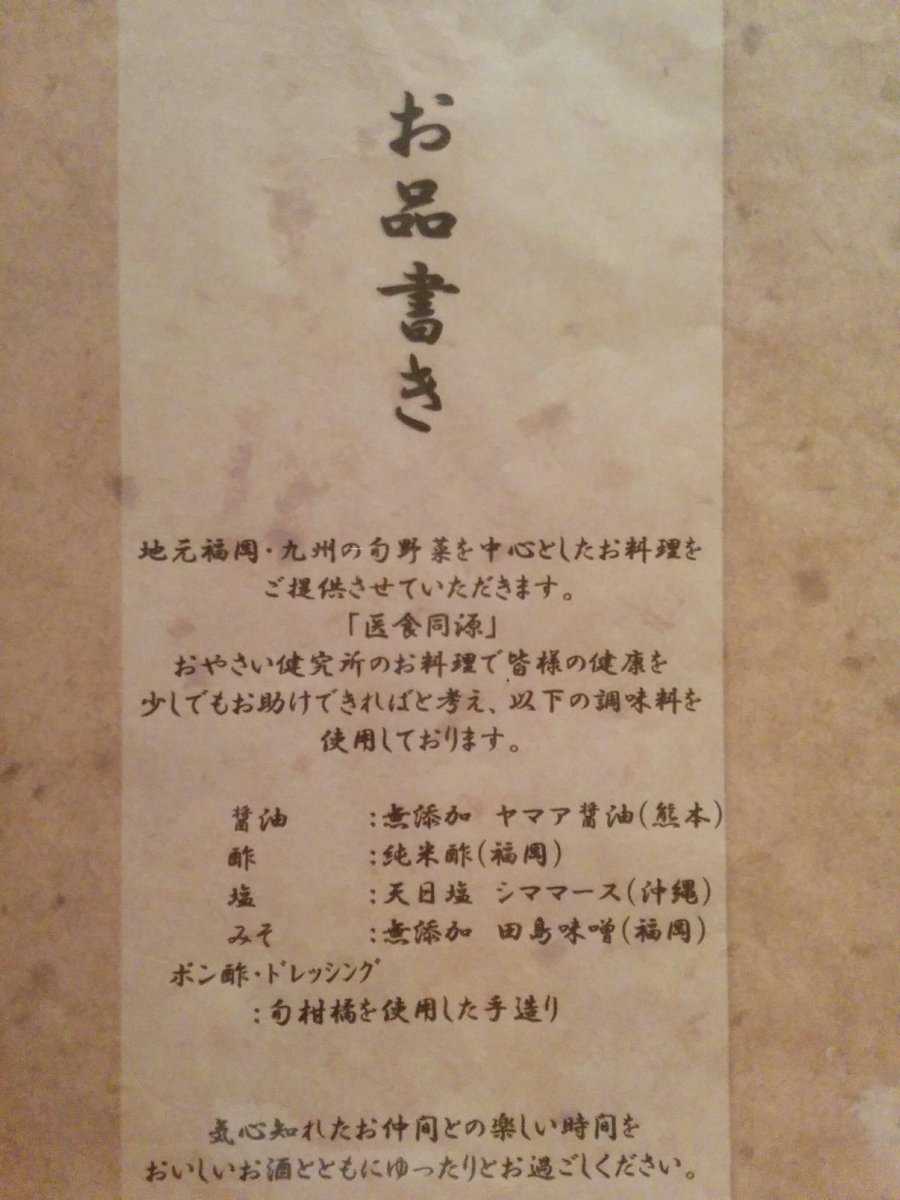 お品書き
地元福岡・九州の旬野菜を中心としたお料理を
ご提供させていただきます。
「医食同源」
おやさい健究所のお料理で皆様の健康を
少しでもお助けできればと考え、以下の調味料を
使用しております。
醤油　：無添加　ヤマア醤油(熊本)
酢　：純米酢(福岡)
塩　：天日塩　シママース(沖縄)
みそ　：無添加　田島味噌(福岡)
ポン酢・ドレッシング
：旬柑橘を使用した手造り
気心知れたお仲間との楽しい時間を
おいしいお酒とともにゆったりとお過ごしください。